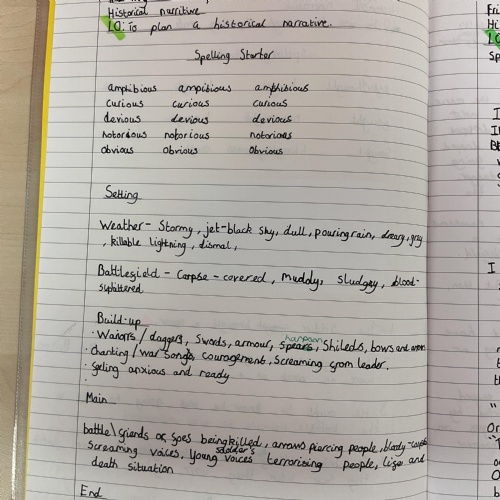 Historical narritive
LO: To plan a historical narrative.
Spelling Starter
amphibious ampibious amphibious
curious curious curious
devious devious devious
notorious notorious notorious
obvious obvious obvious
Setting
Weather - Stormy, jet-black sky, dull, pouring rain, dreary, grey
, killable lightning, dismal,
Battlefield - Corpse-covered, muddy, sludgey, blood-
splattered
Build-up
harpoon
· Waiors / daggers, Swords, armour, spears, Shileds, bows and arrows
· Chanting / war songs, couragement, Screaming from leader.
· feeling anxious and ready
Main
battle\ friends or foes being killed, arrows piercing people, bloody-
soldier's
screaming voices, young voices terrorising people, life and
death situation
End